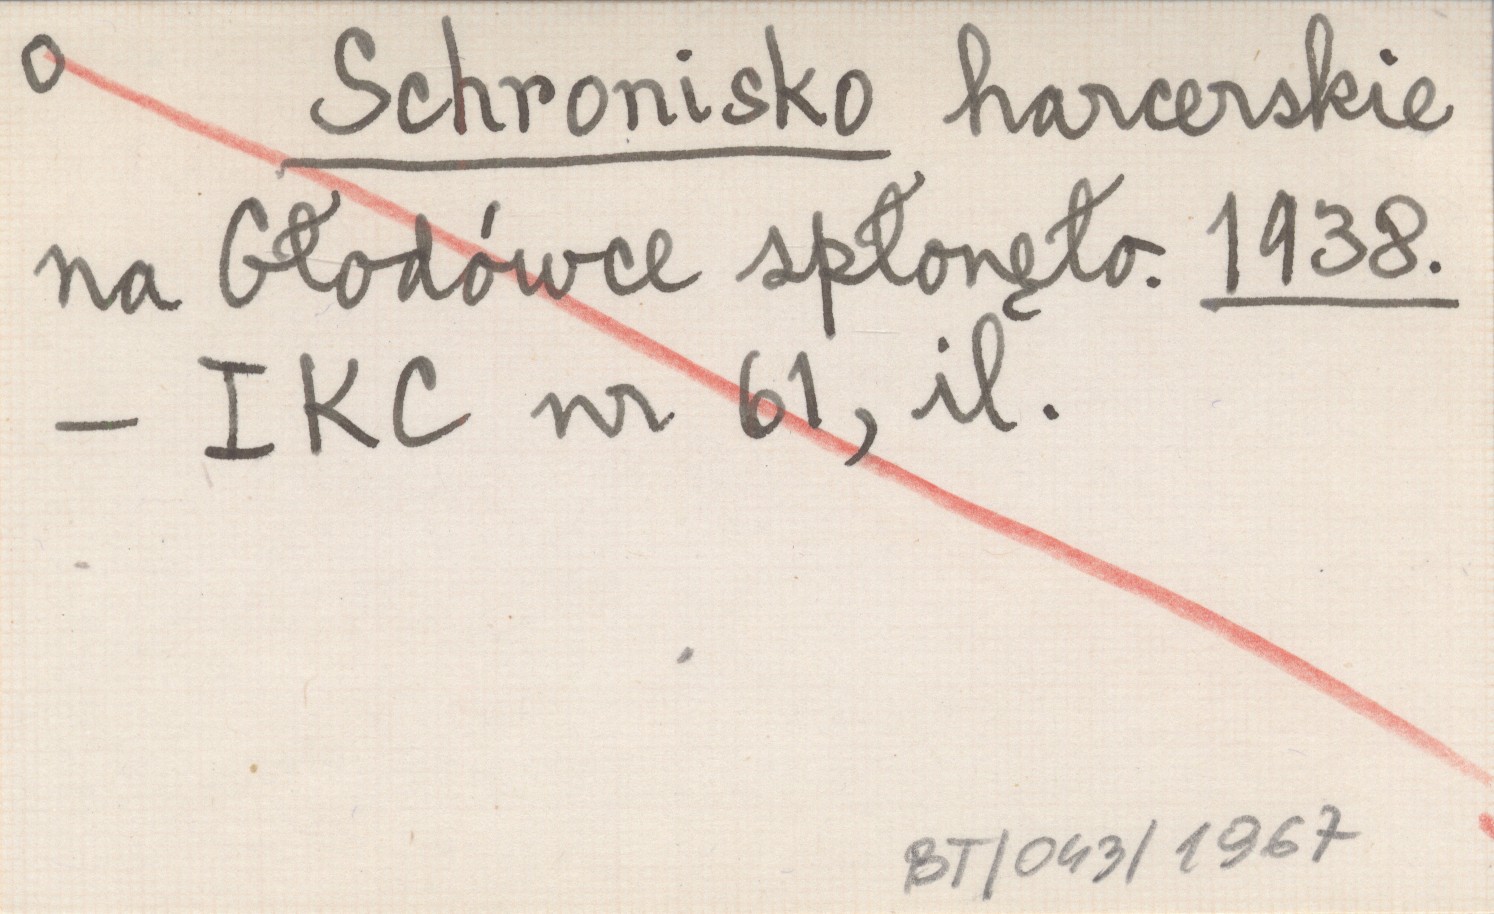 o Schronisko harcerskie
na Głodówce spłonęło. 1938.
– IKC nr 61, il.
BT/043/1967